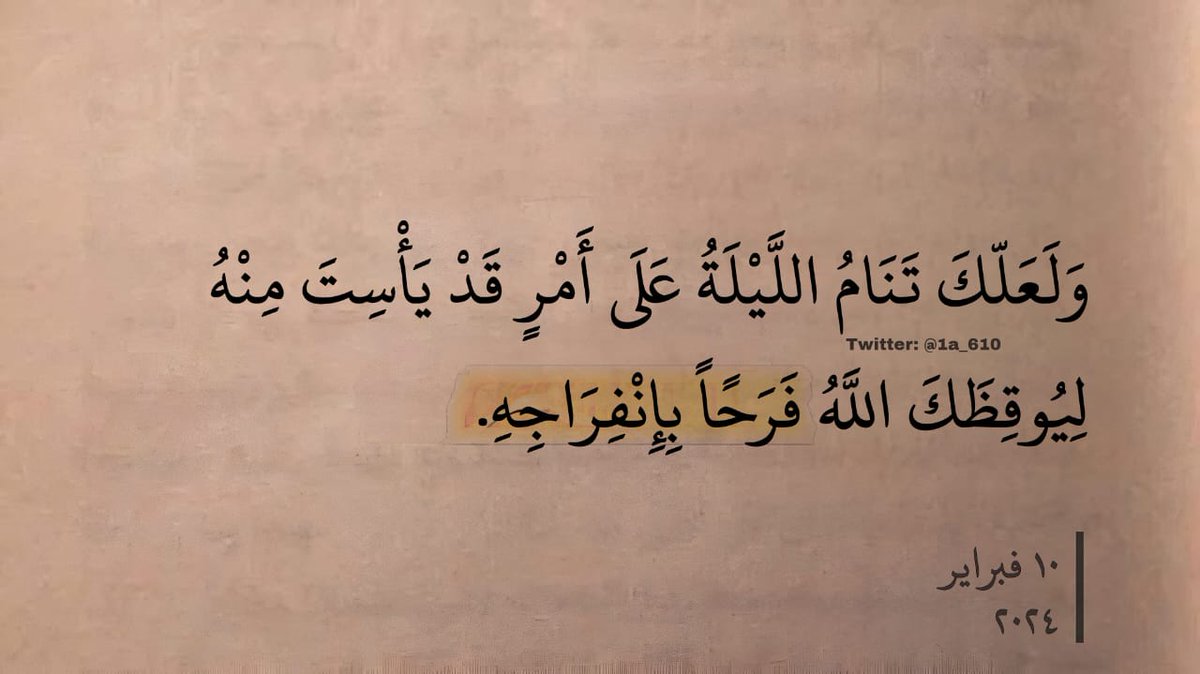 وَلَعَلّكَ تَنَامُ اللَّيْلَةُ عَلَى أَمْرٍ قَدْ يَأْسِتَ مِنْهُ
Twitter: @1a_610
لِيُوقِظَكَ اللَّهُ فَرَحًاً بِإِنْفِرَاجِهِ.
١٠ فبراير
٢٠٢٤